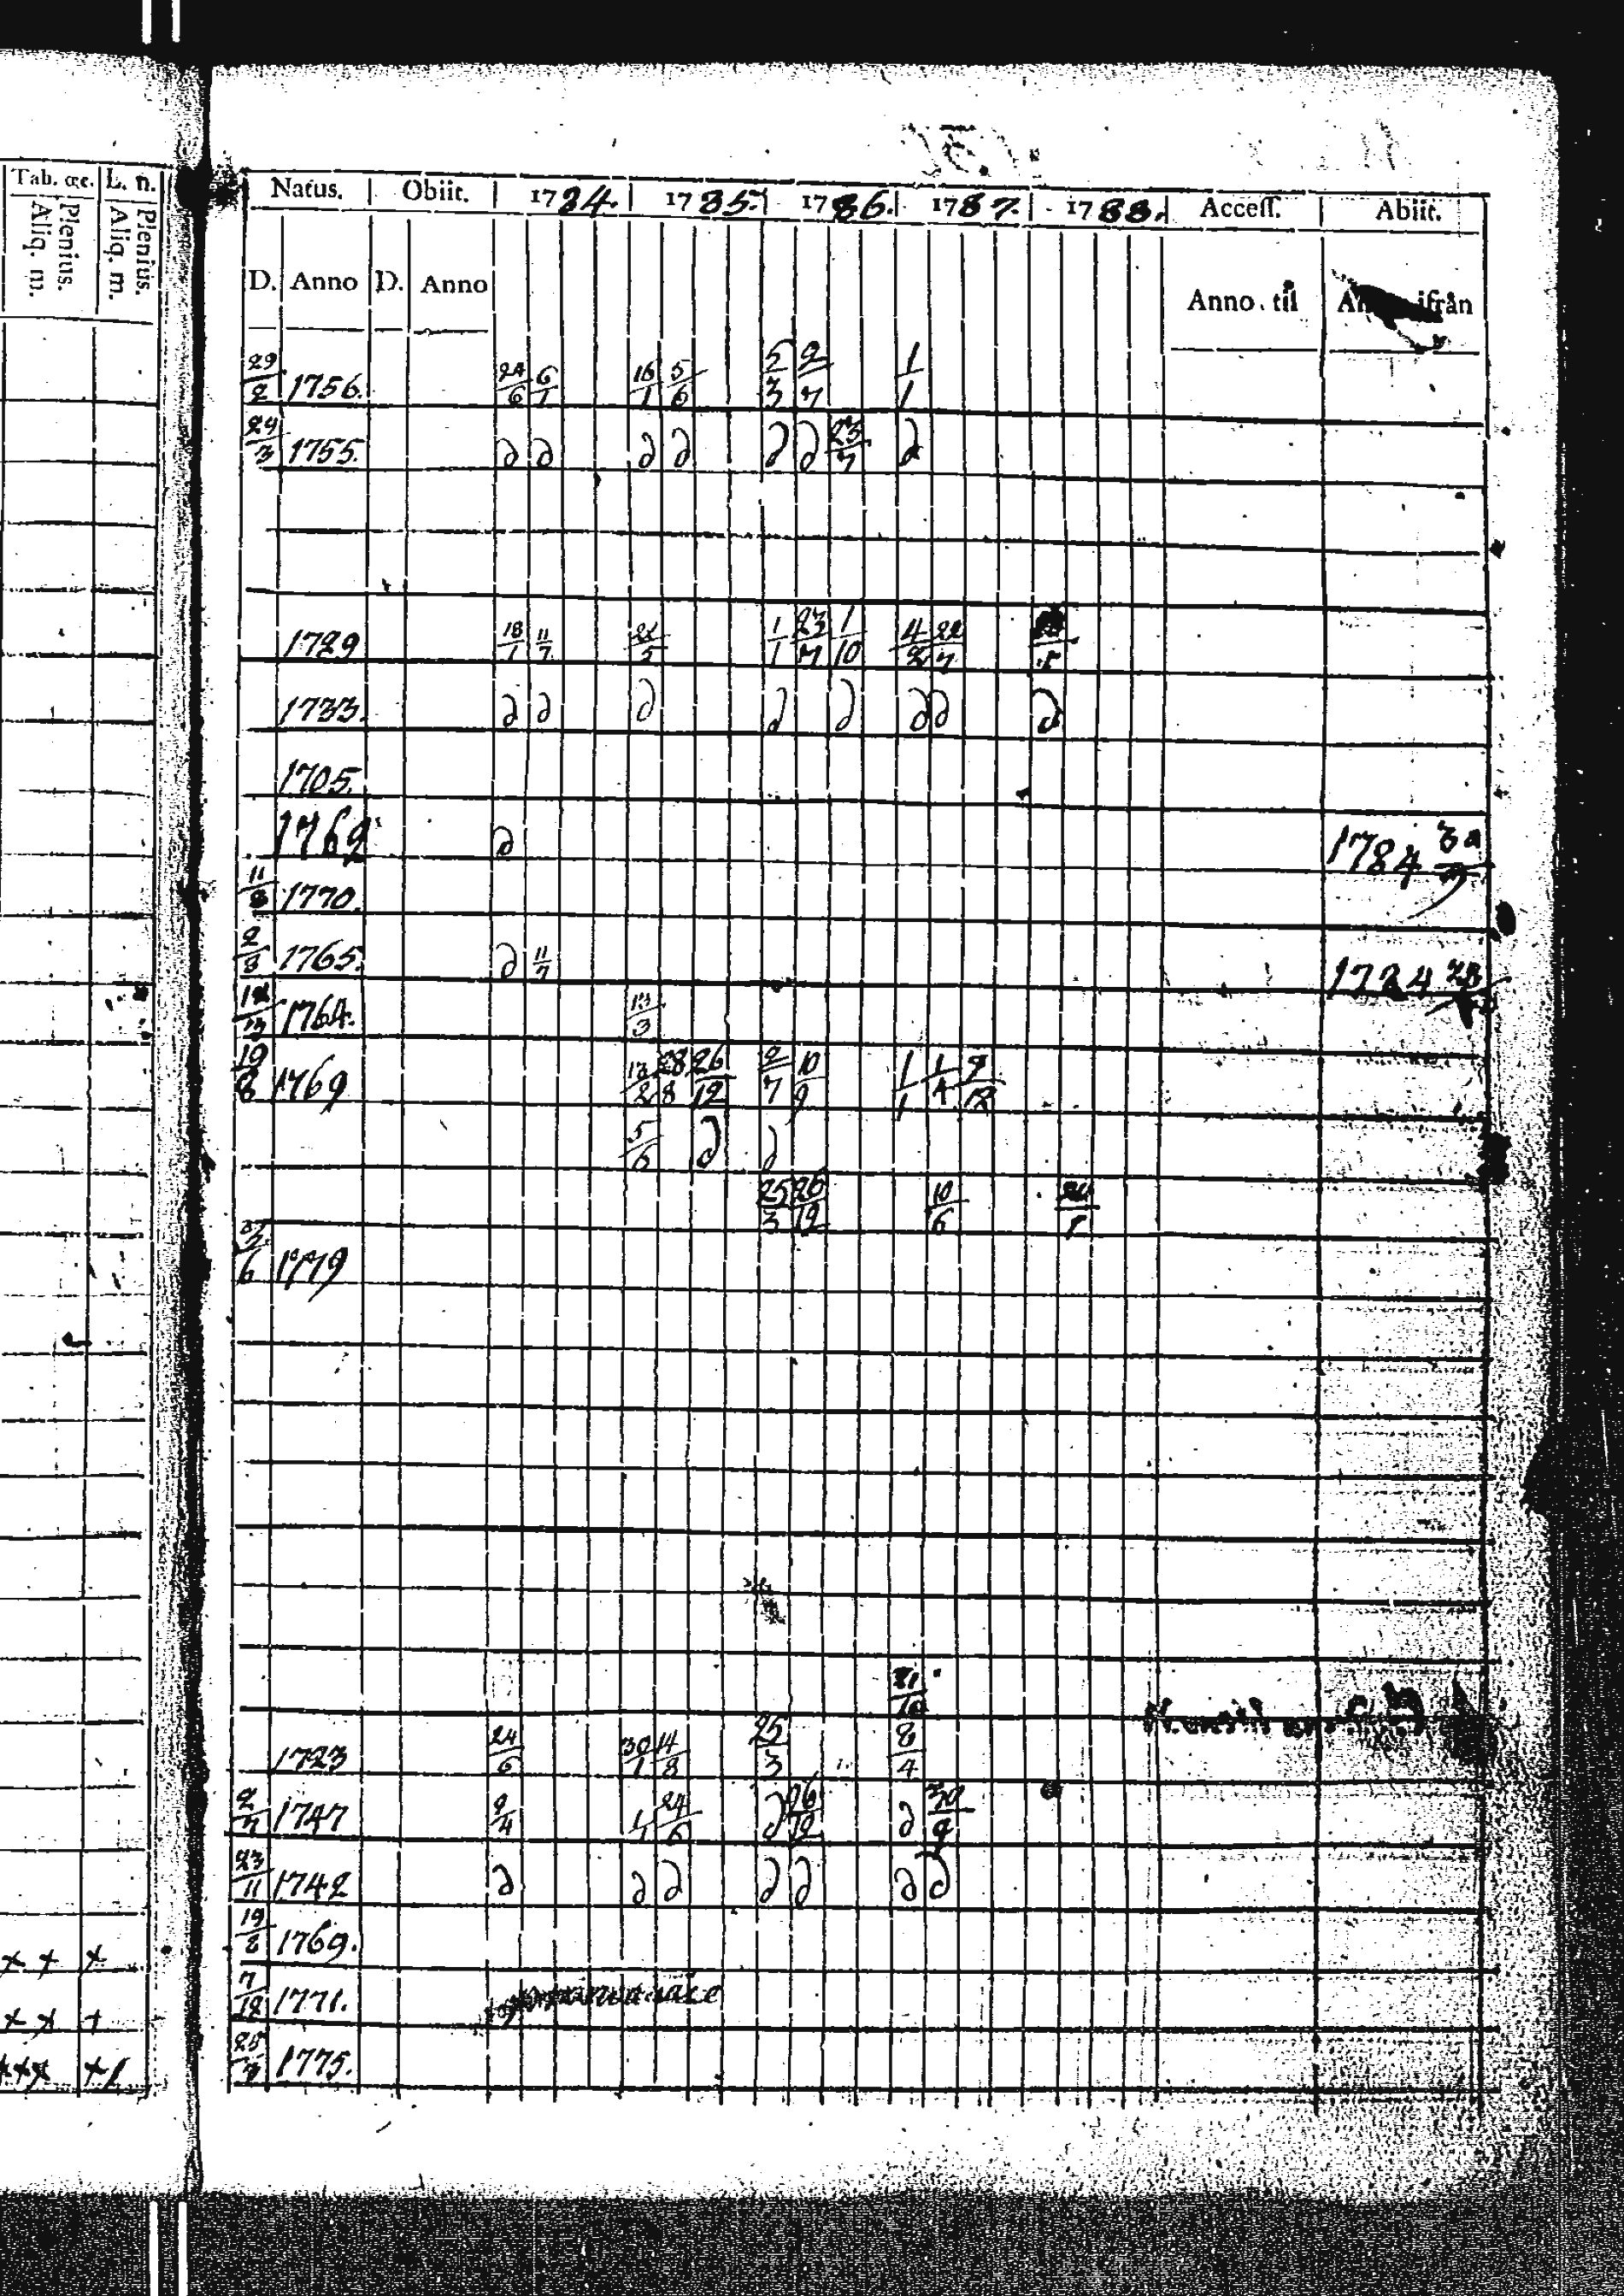 Tab. &c. L. n.
Plenius. Aliq. m. Plenius. Aliq. m.
Natus. Obiit. 1784. 1785. 1786. 1787. 1788. Access. Abiit.
D. Anno D. Anno Anno til ifrån
29/2 1756. 24/6 6/1 16/1 5/6 5/3 2/7 1/1
24/3 1755. ∂ ∂ ∂ ∂ ∂ ∂ 23/7 ∂
1729 18/1 11/7 1/1 23/7 1/10 4/2 22/7
1733. ∂ ∂ ∂ ∂ ∂ ∂ ∂ ∂
1705.
1762 ∂ 1784
11/8 1770.
2/8 1765. ∂ 11/7 1784
1764. 13/3
19/8 1769 13/2 28/8 26/12 2/7 10/9 1/1 1/4 9/12
5/6 ∂ ∂
25/3 26/12 10/6
1779
1723 24/6 30/1 14/8 25/3 8/4
2/7 1747 9/4 1/1 24/6 ∂ 26/12 ∂ 30/9
23/11 1742 ∂ ∂ ∂ ∂ ∂ ∂ ∂
x x x 19/2 1769.
x x + 7/12 1771.
x x x x 1775.